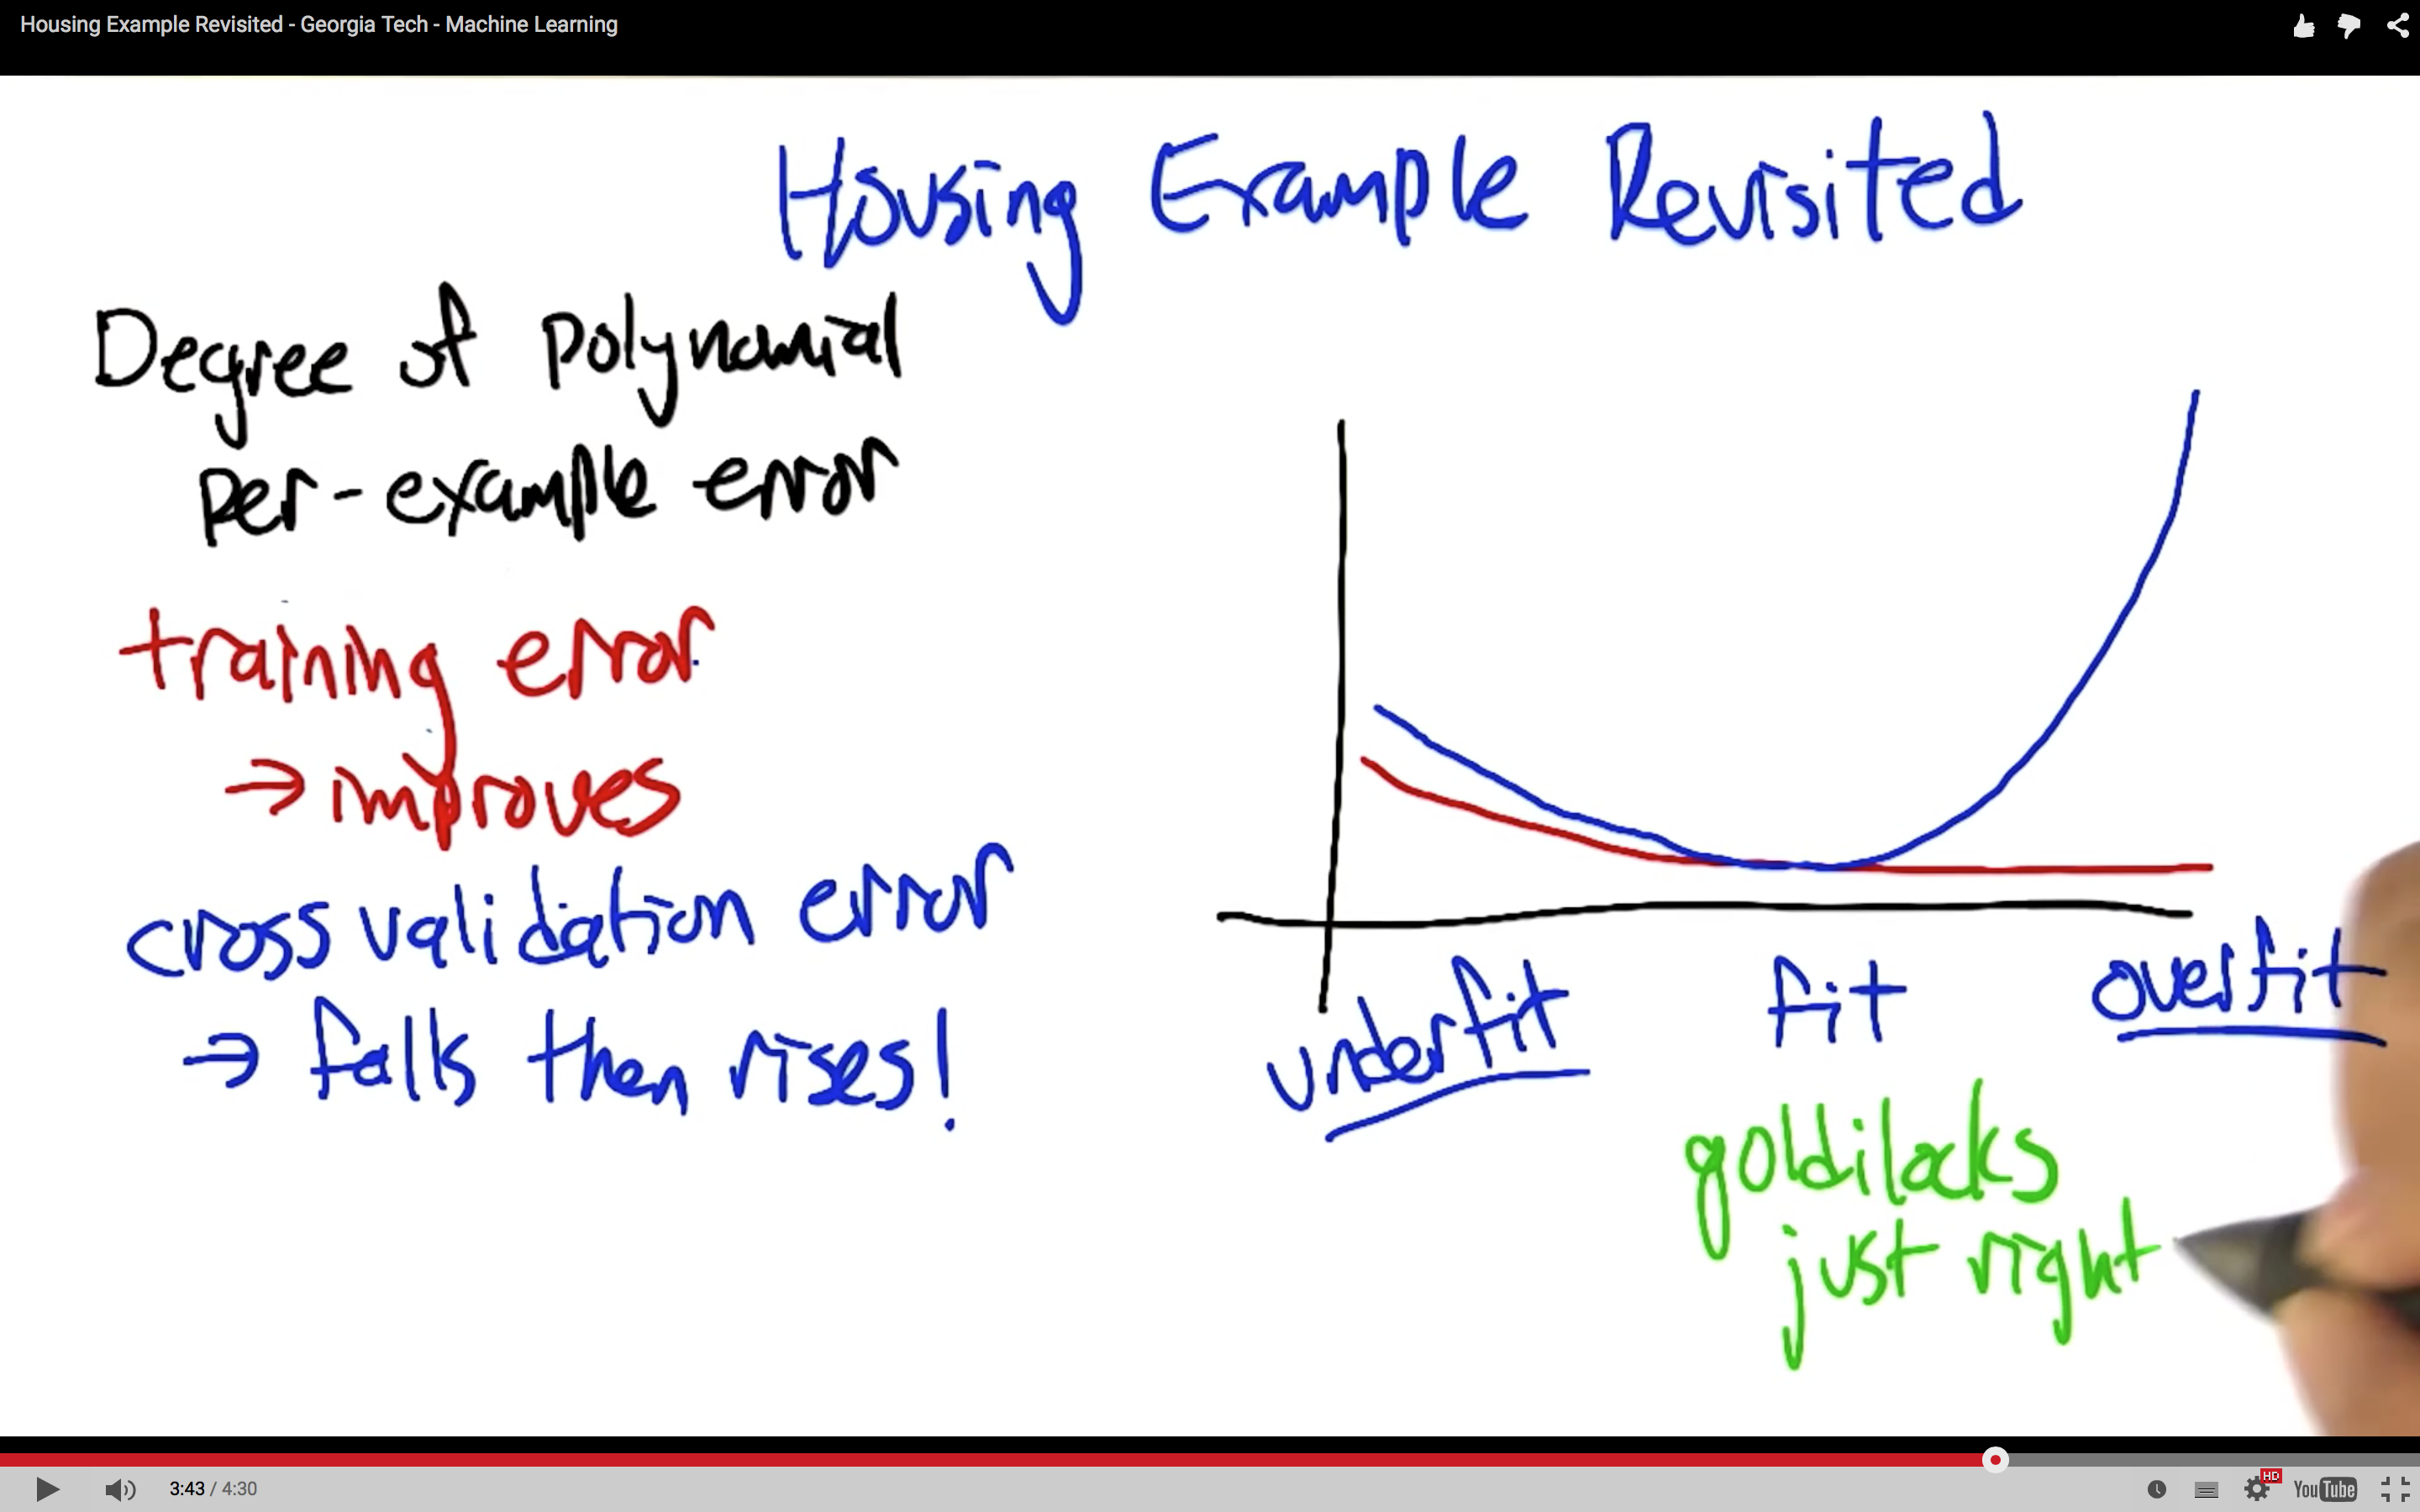 Housing Example Revisited - Georgia Tech - Machine Learning
Housing Example Revisited
Degree of polynomial
per-example error
training error
→ improves
cross validation error
→ falls then rises!
underfit fit overfit
goldilocks
just right
3:43 / 4:30
HD
YouTube